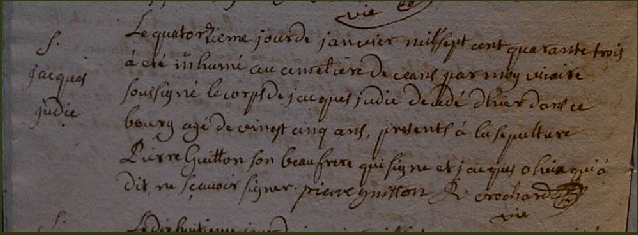 vic
S.
jacques
judic
Le quatorzieme jour de janvier mil sept cent quarante trois
à eté inhumé au cimetiere de ceans par moy vicaire
soussigné le corps de jacques judic decedé d'hier dans ce
bourg agé de vingt cinq ans, presents à la sepulture
Pierre Guitton son beaufrere qui signe et jacques qui à
dit ne sçavoir signer. pierre guitton R. crochard
vic
Le dixhuitieme